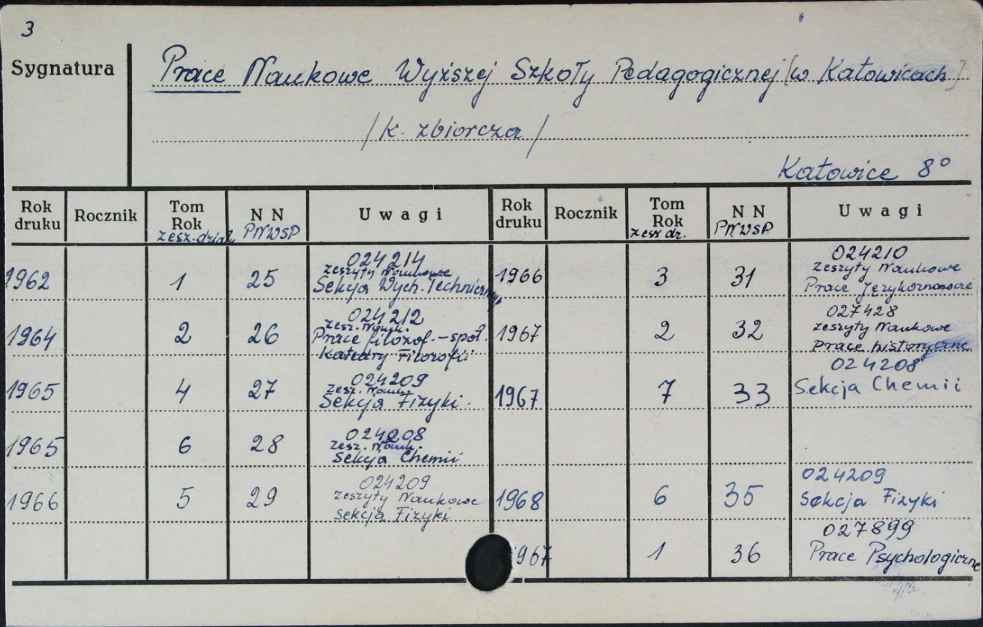 3
Sygnatura
Prace Naukowe Wyższej Szkoły Pedagogicznej [w Katowicach]
/k. zbiorcza/
Katowice 8°
Rok druku Rocznik Tom Rok zesz. dział. N N PNWSP Uwagi Rok druku Rocznik Tom Rok zesz dz. N N PNWSP Uwagi
1962 1 25 024214 zeszyty Naukowe Sekcja Wych. Techniczn. 1966 3 31 024210 zeszyty Naukowe Prace Językoznawcze
1964 2 26 024212 zesz. Nauk. Prace filozof.-społ. Katedry Filozofii 1967 2 32 027428 zeszyty Naukowe Prace historyczne
1965 4 27 024209 zesz. Nauk. Sekcja Fizyki. 1967 7 33 024208 Sekcja Chemii
1965 6 28 024208 zesz. Nauk. Sekcja Chemii
1966 5 29 024209 zeszyty Naukowe Sekcja Fizyki 1968 6 35 024209 Sekcja Fizyki
1967 1 36 027899 Prace Psychologiczne